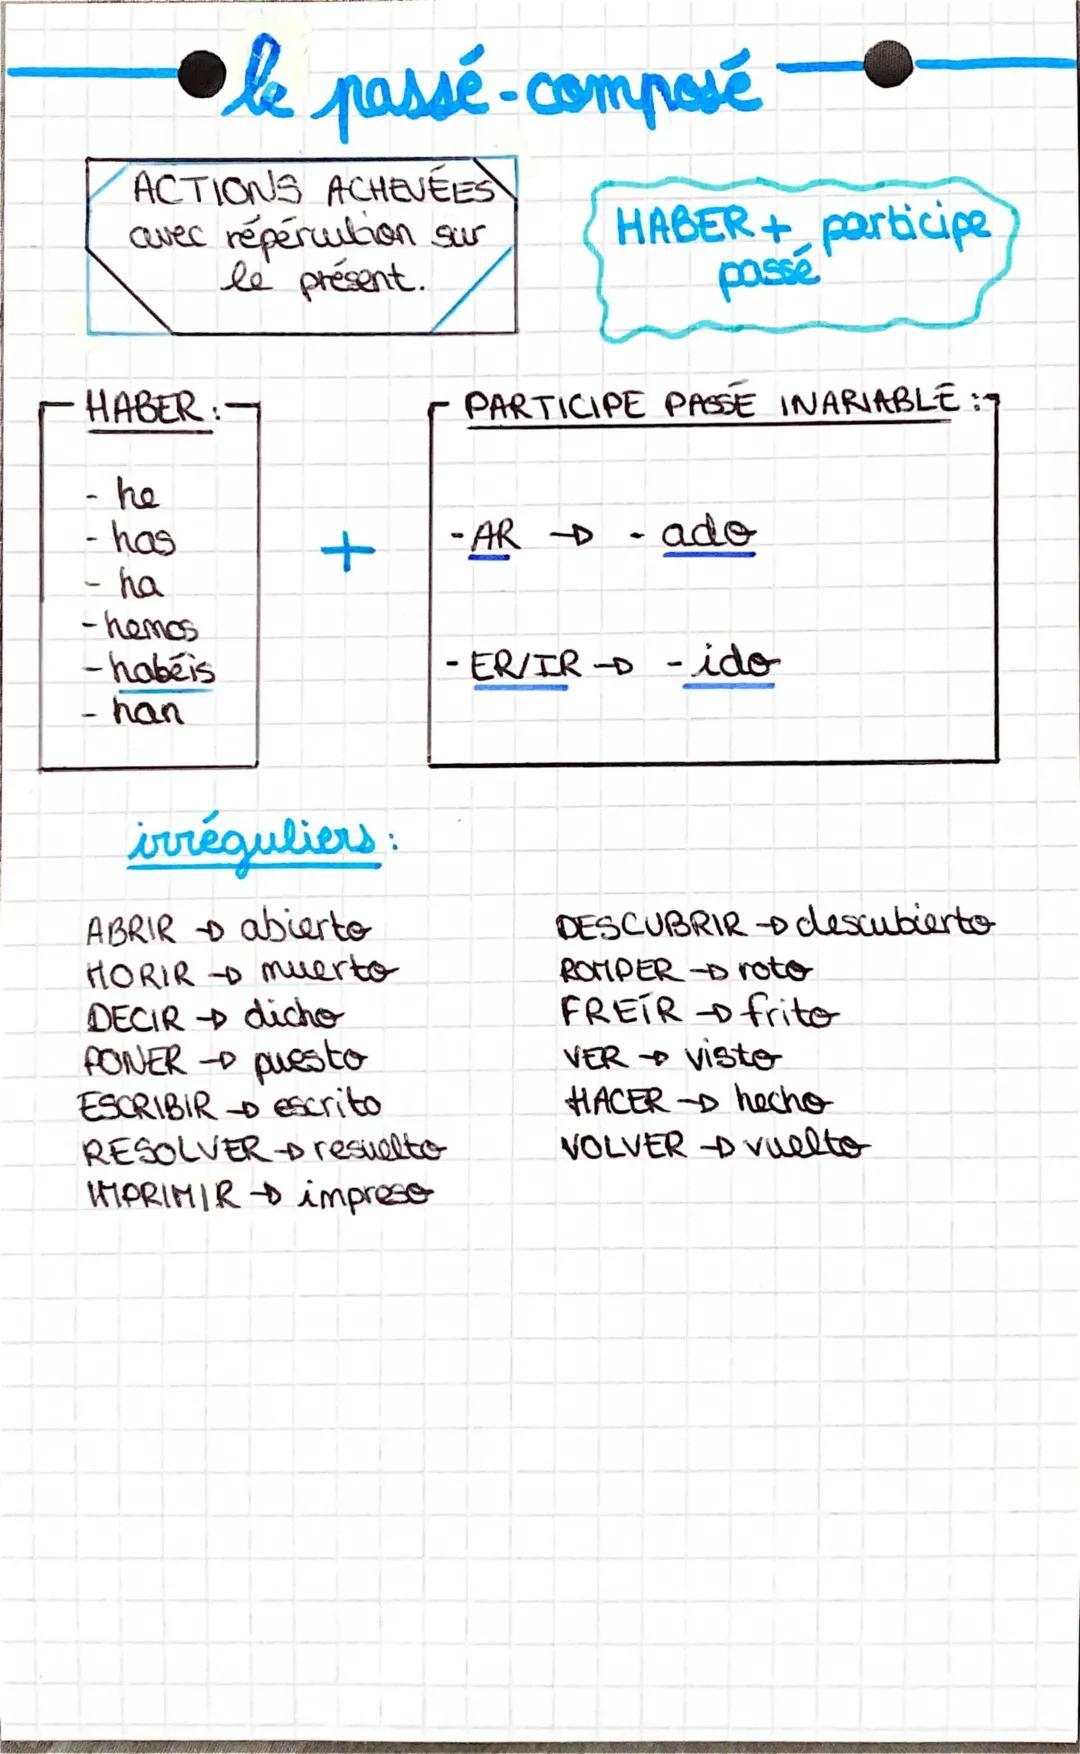 le passé-composé
ACTIONS ACHEVÉES
avec répércution sur
le présent.
HABER + participe
passé
HABER :
- he
- has
- ha
- hemos
- habéis
- han
+
PARTICIPE PASSÉ INARIABLE :
- AR → - ado
- ER/IR → - ido
irréguliers :
ABRIR → abierto
MORIR → muerto
DECIR → dicho
PONER → puesto
ESCRIBIR → escrito
RESOLVER → resuelto
IMPRIMIR → impreso
DESCUBRIR → descubierto
ROMPER → roto
FREÍR → frito
VER → visto
HACER → hecho
VOLVER → vuelto